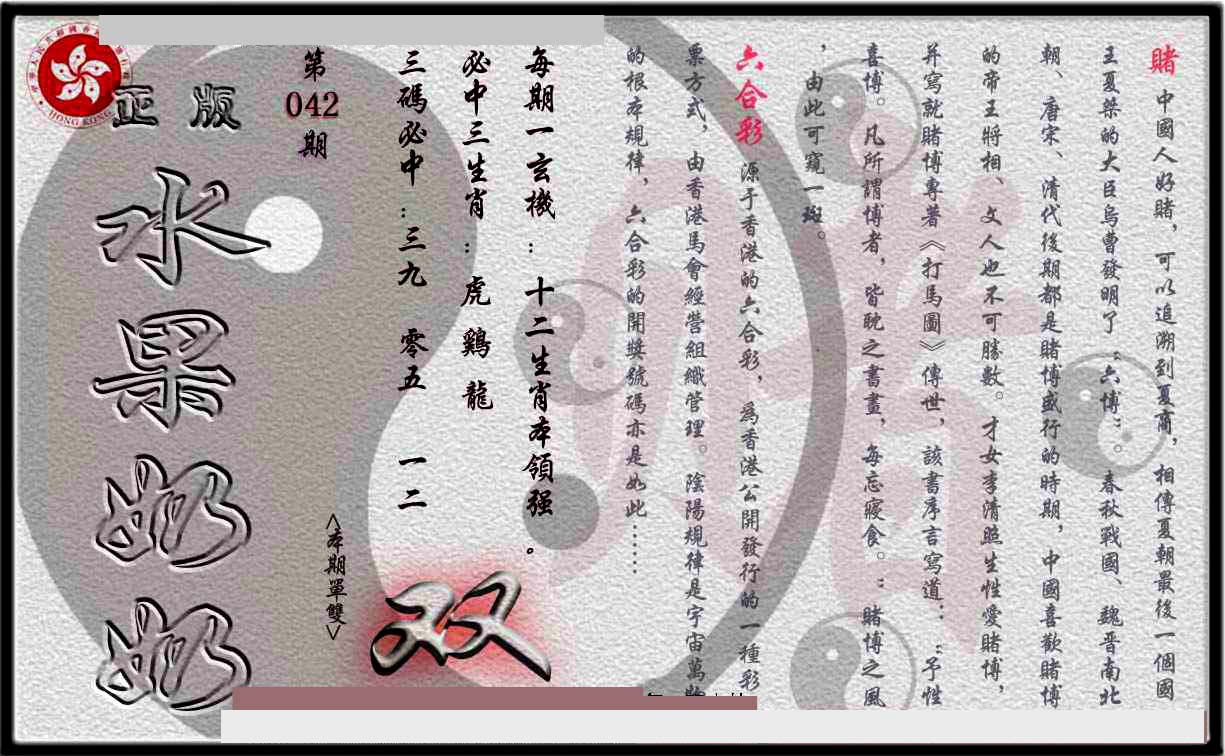 賭 中國人好賭，可以追溯到夏商，相傳夏朝最後一個國
王夏桀的大臣烏曹發明了“六博”。春秋戰國、魏晋南北
朝、唐宋、清代後期都是賭博盛行的時期，中國喜歡賭博
的帝王將相、文人也不可勝數。才女李清照生性愛賭博，
并寫就賭博專著《打馬圖》傳世，該書序言寫道：“予性
喜博。凡所謂博者，皆耽之書畫，每忘寢食。”賭博之風
，由此可窺一斑。
六合彩 源于香港的六合彩，爲香港公開發行的一種彩
票方式，由香港馬會經營組織管理。陰陽規律是宇宙萬物
的根本規律，六合彩的開獎號碼亦是如此……
每期一玄機：十二生肖本領强。
必中三生肖：虎 鷄 龍
三碼必中：三九 零五 一二
<本期單雙>
双
第
042
期
正版
水果奶奶
HONG KONG